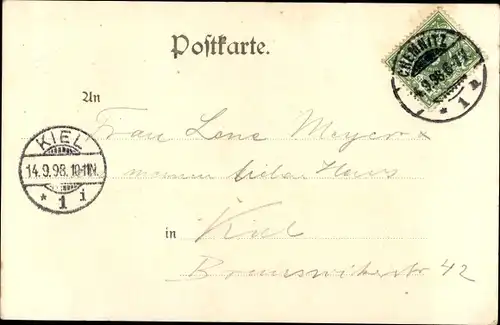 Postkarte.
CHEMNITZ
9.98.6-7N
* 1 a
An
Frau Lene Meyer
KIEL
14.9.98.10-11N.
* 1 i
meinen lieben Hans
in Kiel
Brunswikerstr 42